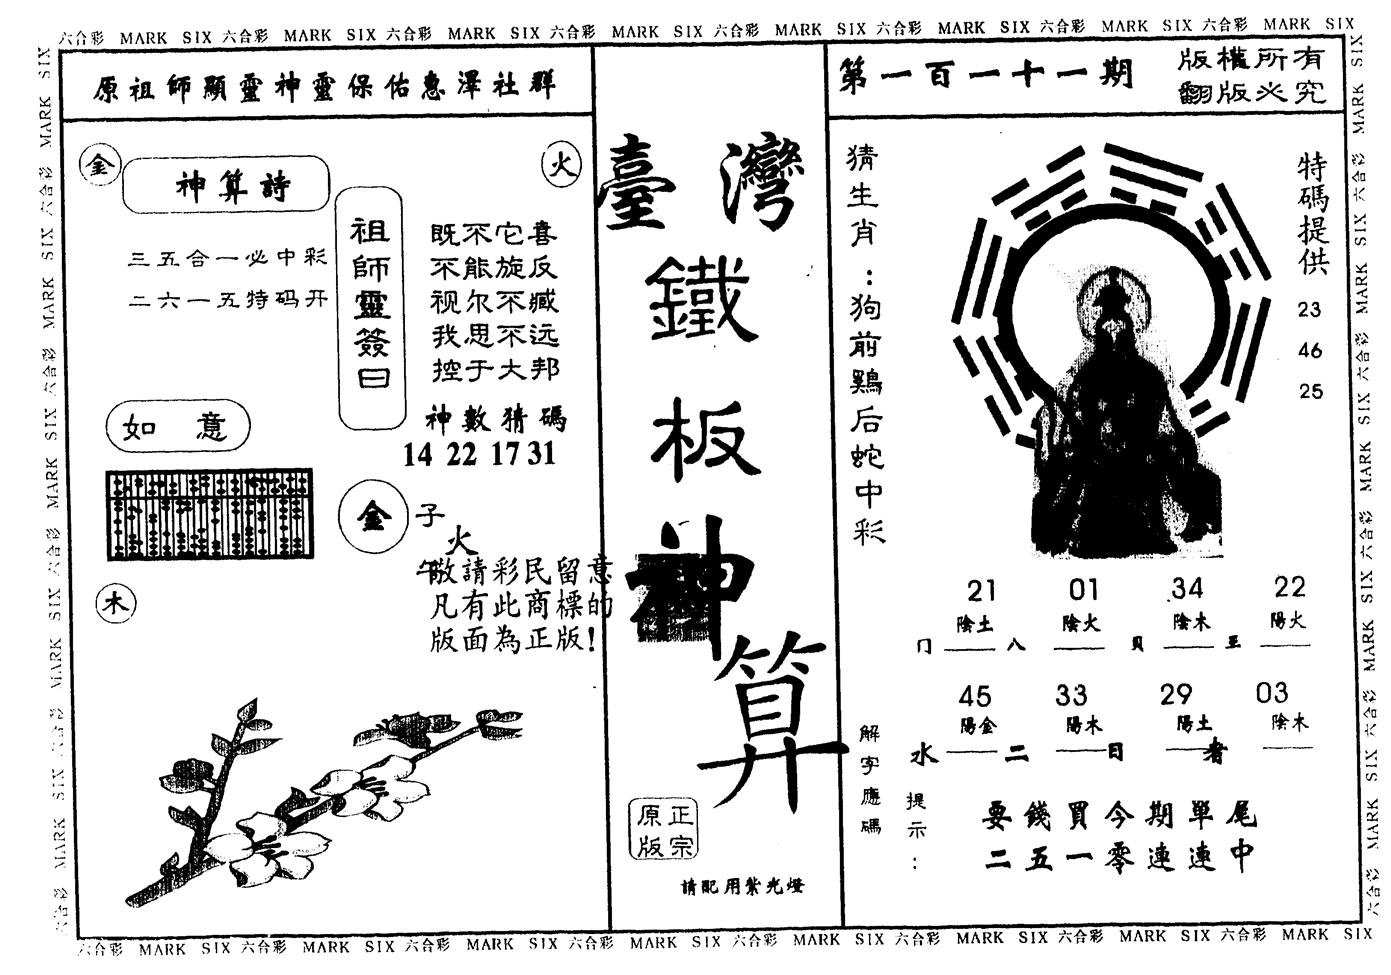 六合彩 MARK SIX 六合彩 MARK SIX 六合彩 MARK SIX 六合彩 MARK SIX 六合彩 MARK SIX 六合彩 MARK SIX 六合彩 MARK SIX 六合彩 MARK SIX
原祖師顯靈神靈保佑惠澤社群
金
神算詩
火
三五合一必中彩
二六一五特码开
祖師靈簽曰
既不它喜
不能旋反
视尔不臧
我思不远
控于大邦
神數猜碼
14 22 17 31
如意
金
子
火
午
敬請彩民留意
凡有此商標的
版面為正版!
木
臺灣
鐵
板
神
算
正宗
原版
請配用紫光燈
第一百一十一期
版權所有
翻版必究
猜生肖:狗前鷄后蛇中彩
特碼提供
23
46
25
21 01 34 22
陰土 陰火 陰木 陽火
冂 八 貝 王
45 33 29 03
陽金 陽木 陽土 陰木
水 二 日 者
解字應碼
提示:
要錢買今期單尾
二五一零連連中
六合彩 MARK SIX 六合彩 MARK SIX 六合彩 MARK SIX 六合彩 MARK SIX 六合彩 MARK SIX 六合彩 MARK SIX 六合彩 MARK SIX 六合彩 MARK SIX